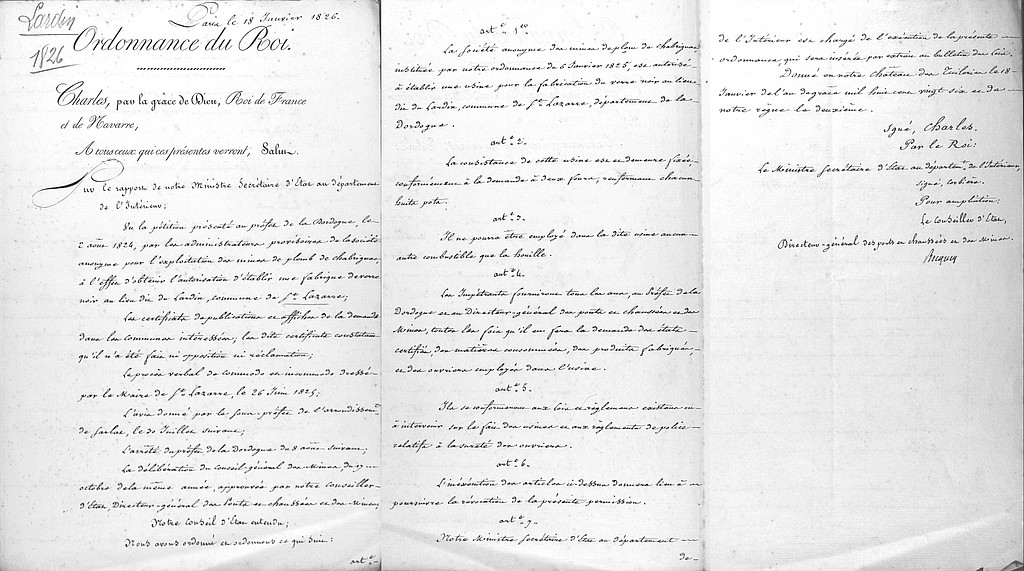 Lardin
1826
Paris le 18 Janvier 1826.
Ordonnance du Roi.
Charles, par la grâce de Dieu, Roi de France
et de Navarre,
A tous ceux qui ces présentes verront, Salut.
Sur le rapport de notre Ministre Secrétaire d'Etat au département
de l'Intérieur;
Vu la pétition présenté au préfet de la Dordogne, le
2 août 1824, par les administrateurs provisoires de la société
anonyme pour l'exploitation des mines de plomb de Chabrignac
à l'effet d'obtenir l'autorisation d'établir une fabrique de verre
noir au lieu dit du Lardin, commune de St. Lazarre;
Les certificats de publications et affiches de la demande
dans les communes intéressées; les dits certificats constatant
qu'il n'a été fait ni opposition ni réclamation;
Le procès verbal de commodo et incommodo dressé
par le Maire de St. Lazarre, le 26 Juin 1825;
L'avis donné par le sous-préfet de l'arrondissemt.
de Sarlat, le 30 Juillet suivant;
L'arrêté du préfet de la Dordogne du 8 août suivant;
La délibération du Conseil-général des Mines, du 17
octobre de la même année, approuvée par notre Conseiller
d'Etat, Directeur-général des Ponts et chaussées et des Mines;
Notre Conseil d'Etat entendu;
Nous avons ordonné et ordonnons ce qui suit:
art.e
art.e 1.er
La Société anonyme des mines de plomb de Chabrignac
instituée par notre ordonnance du 6 Janvier 1825, est autorisée
à établir une usine pour la fabrication du verre noir au lieu
dit du Lardin, commune de St. Lazarre, département de la
Dordogne.
art.e 2.
La consistance de cette usine est et demeure fixée
conformément à la demande à deux fours, renfermant chacun
huit pots.
art.e 3.
Il ne pourra être employé dans la dite usine aucun
autre combustible que la houille.
art.e 4.
Les Impétrants fourniront tous les ans, au Préfet de la
Dordogne et au Directeur-général des ponts et chaussées et des
Mines, toutes les fois qu'il en fera la demande des états
certifiés, des matières consommées, des produits fabriqués,
et des ouvriers employés dans l'usine.
art.e 5.
Ils se conformeront aux lois et règlemens existans ou
à intervenir sur le fait des usines et aux règlements de police
relatifs à la sureté des ouvriers.
art.e 6.
L'inéxécution des articles ci-dessus donnera lieu à
poursuivre la révocation de la présente permission.
art.e 7.
Notre Ministre Secrétaire d'Etat au département
de
de l'Intérieur est chargé de l'exécution de la présente
ordonnance, qui sera insérée par extrait au bulletin des lois.
Donné en notre château des Tuileries le 18
Janvier de l'an de grâce mil huit cent vingt six et de
notre règne le deuxième.
Signé, Charles.
Par le Roi:
Le Ministre Secrétaire d'Etat au départemt. de l'Intérieur,
signé, Corbière.
Pour ampliation:
Le Conseiller d'Etat,
Directeur-général des ponts et chaussées et des Mines.
Becquey